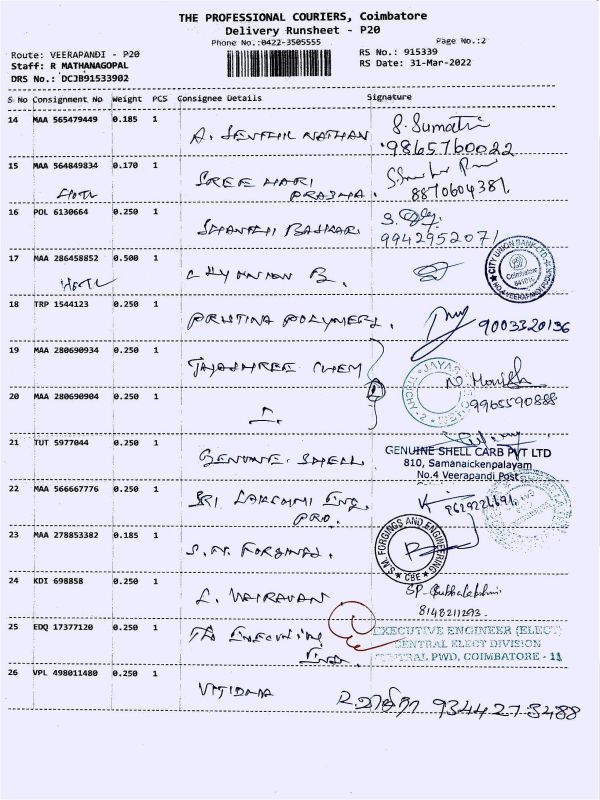 THE PROFESSIONAL COURIERS, Coimbatore
Delivery Runsheet - P20
Phone No.:0422-3505555
Page No.:2
Route: VEERAPANDI - P20
Staff: R MATHANAGOPAL
DRS No.: DCJB91533902
RS No.: 915339
RS Date: 31-Mar-2022
S No Consignment No Weight PCS Consignee Details Signature
14 MAA 565479449 0.185 1 A. SENTHIL NATHAN S. Sumathi
9865760022
15 MAA 564849834 0.170 1 SREE HARI
PRABHA.
8870604381
16 POL 6130664 0.250 1 SHANTHI BASKAR
9942952071
17 MAA 286458852 0.500 1 CITY UNION B.
CITY UNION BANK LTD.
Coimbatore
641019
NO.4 VEERAPANDI
18 TRP 1544123 0.250 1 PRISTINA POLYMERS. 9003320136
19 MAA 280690934 0.250 1 JAYASHREE CHEM
JAYAS
TRICHY - 2
9965590888
20 MAA 280690904 0.250 1
21 TUT 5977044 0.250 1 GENUINE SHELL
GENUINE SHELL CARB PVT LTD
810, Samanaickenpalayam
No.4 Veerapandi Post
22 MAA 566667776 0.250 1 SRI LAKSHMI ENG.
PRO.
23 MAA 278853382 0.185 1 S.M. FORGINGS.
S.M. FORGINGS AND ENGINEERING
CBE
24 KDI 698858 0.250 1 L. VAIRAVAN SP. Subbalakshmi
8148211293.
25 EDQ 17377120 0.250 1 The EXECUTIVE
ENGR.
EXECUTIVE ENGINEER (ELECT)
CENTRAL ELECT DIVISION
CENTRAL PWD, COIMBATORE - 11
26 VPL 498011480 0.250 1 VIJIDHA 9344273488